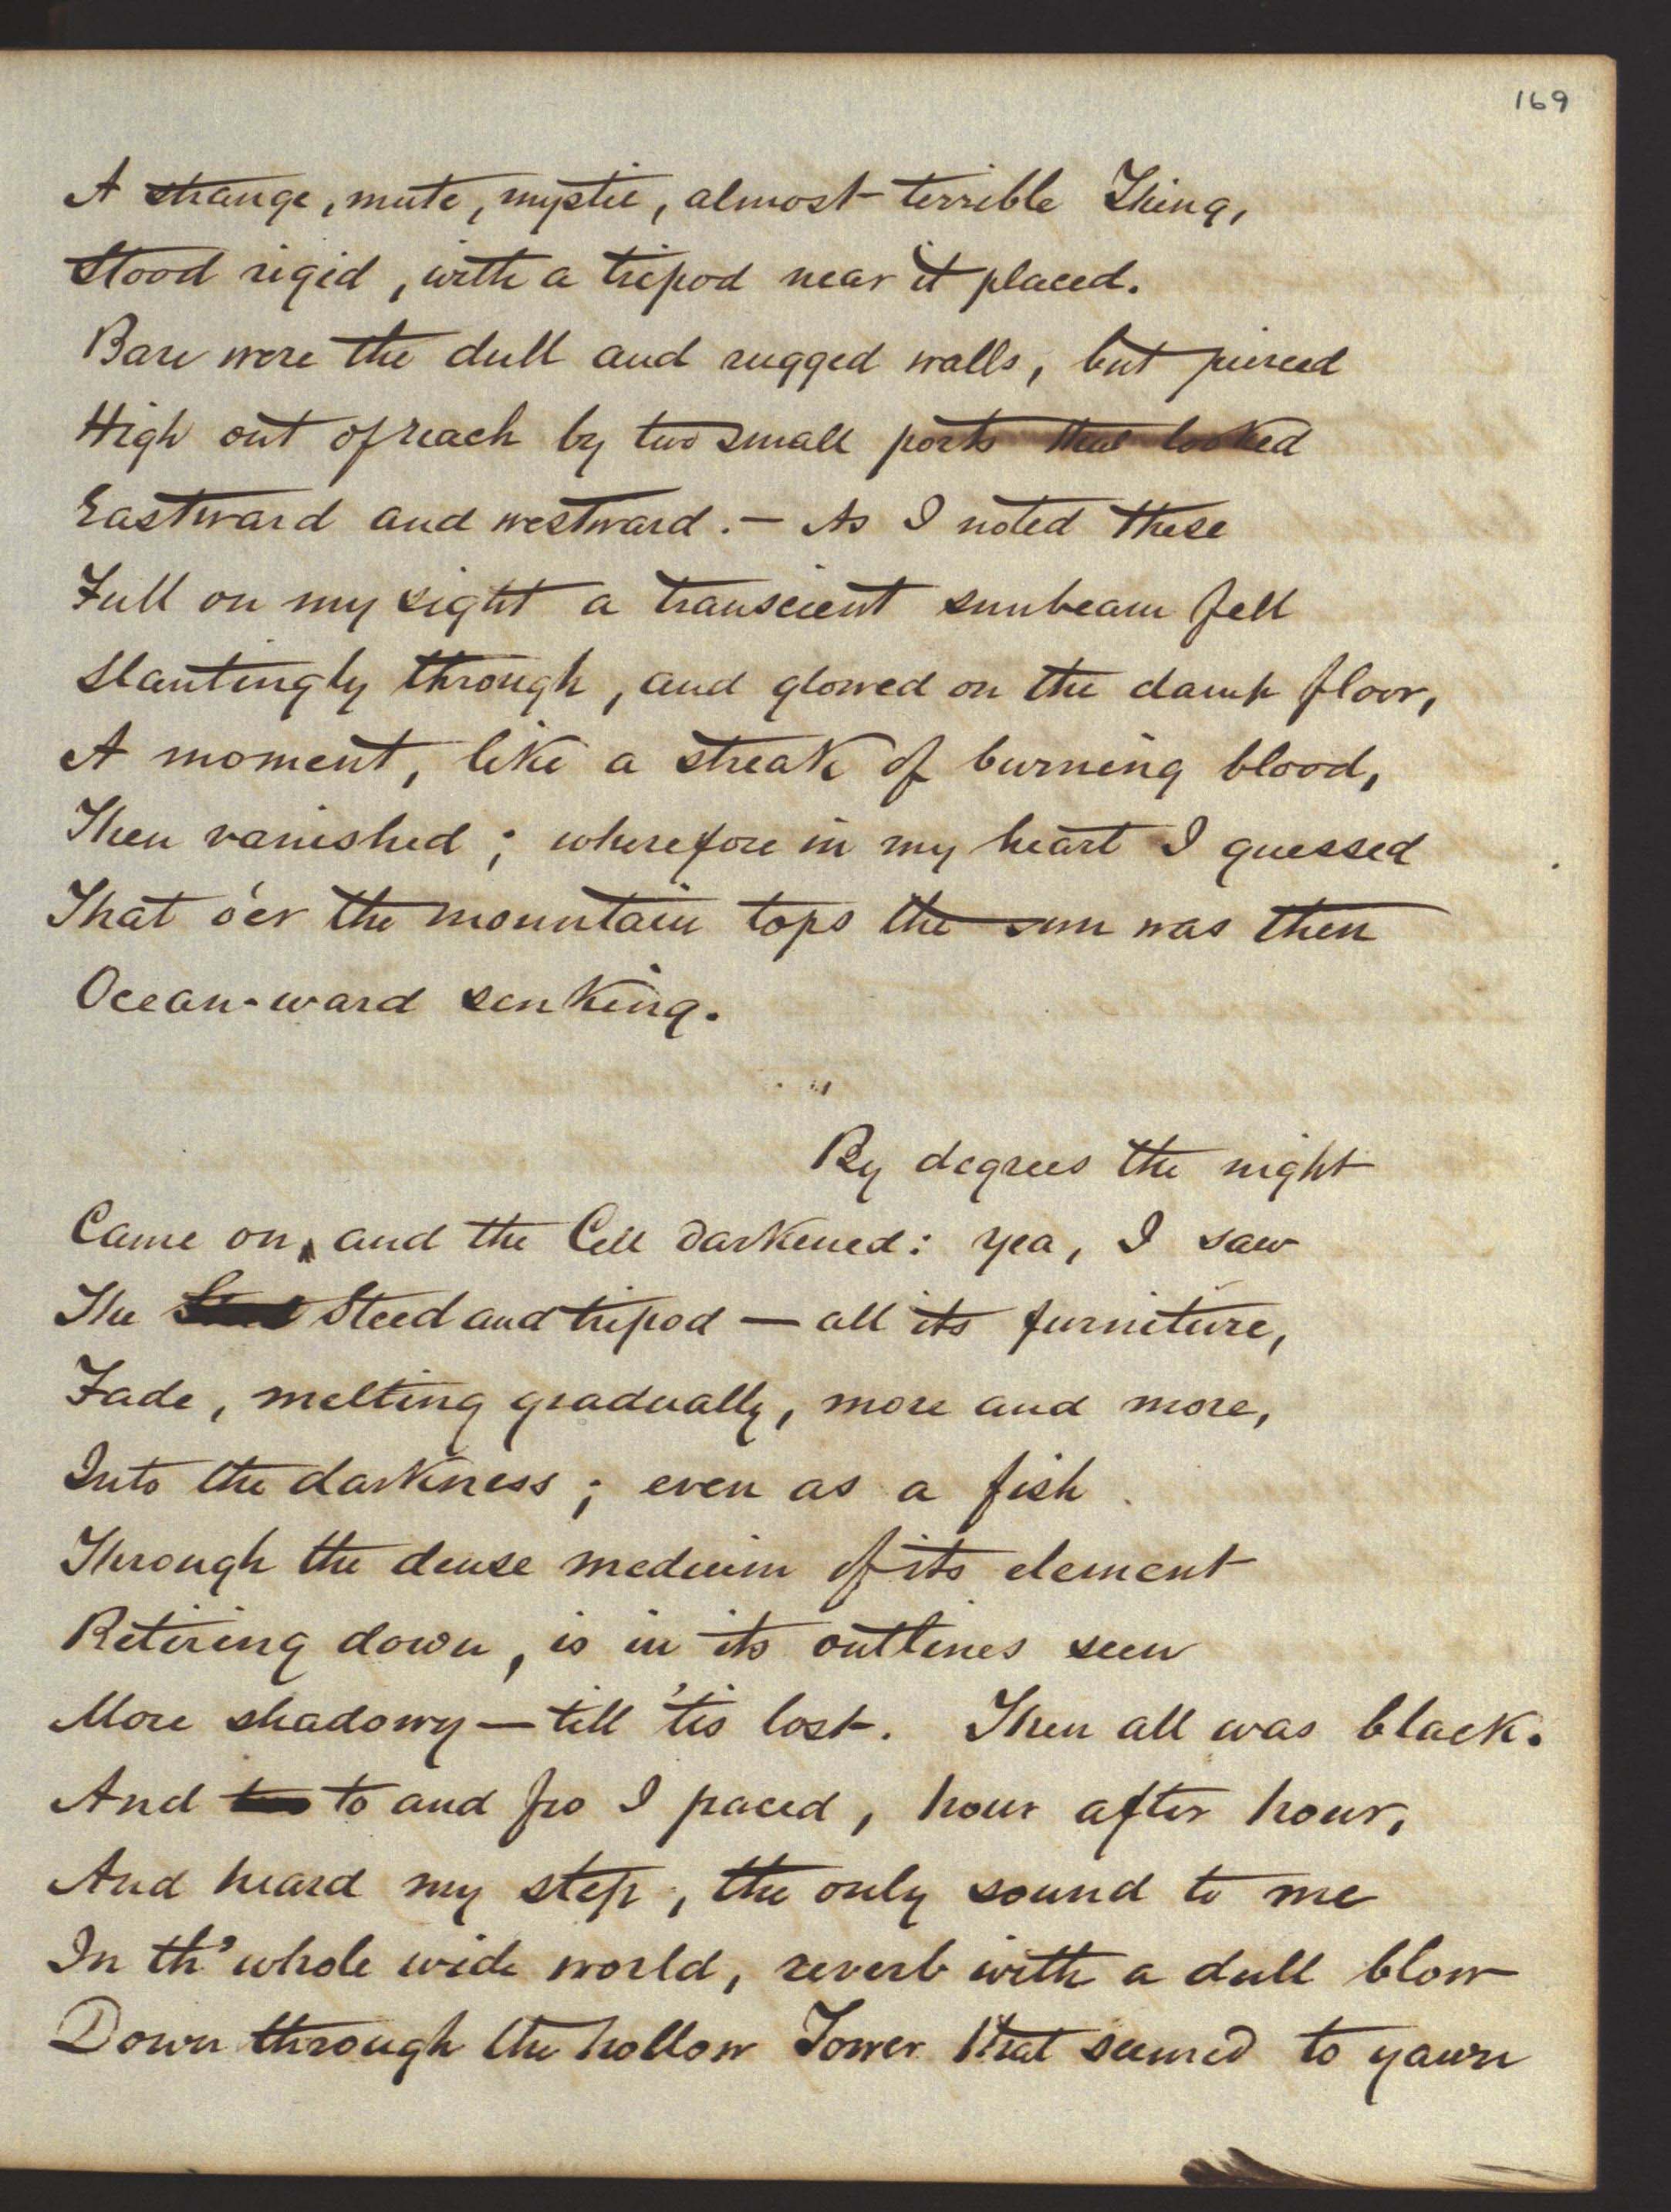 169
A strange, mute, mystic, almost terrible Thing,
Stood rigid, with a tripod near it placed.
Bare were the dull and rugged walls, but pierced
High out of reach by two small ports that looked
Eastward and westward. — As I noted these
Full on my sight a transcient sunbeam fell
Slantingly through, and glowed on the damp floor,
A moment, like a streak of burning blood,
Then vanished; wherefore in my heart I guessed
That o'er the mountain tops the sun was then
Ocean-ward sinking.
By degrees the night
Came on, and the Cell darkened: yea, I saw
The Steed and tripod — all its furniture,
Fade, melting gradually, more and more,
Into the darkness; even as a fish
Through the dense medium of its element
Retiring down, is in its outlines seen
More shadowy — till 'tis lost. Then all was black.
And to and fro I paced, hour after hour,
And heard my step, the only sound to me
In th' whole wide world, reverb with a dull blow
Down through the hollow Tower that seemed to yawn